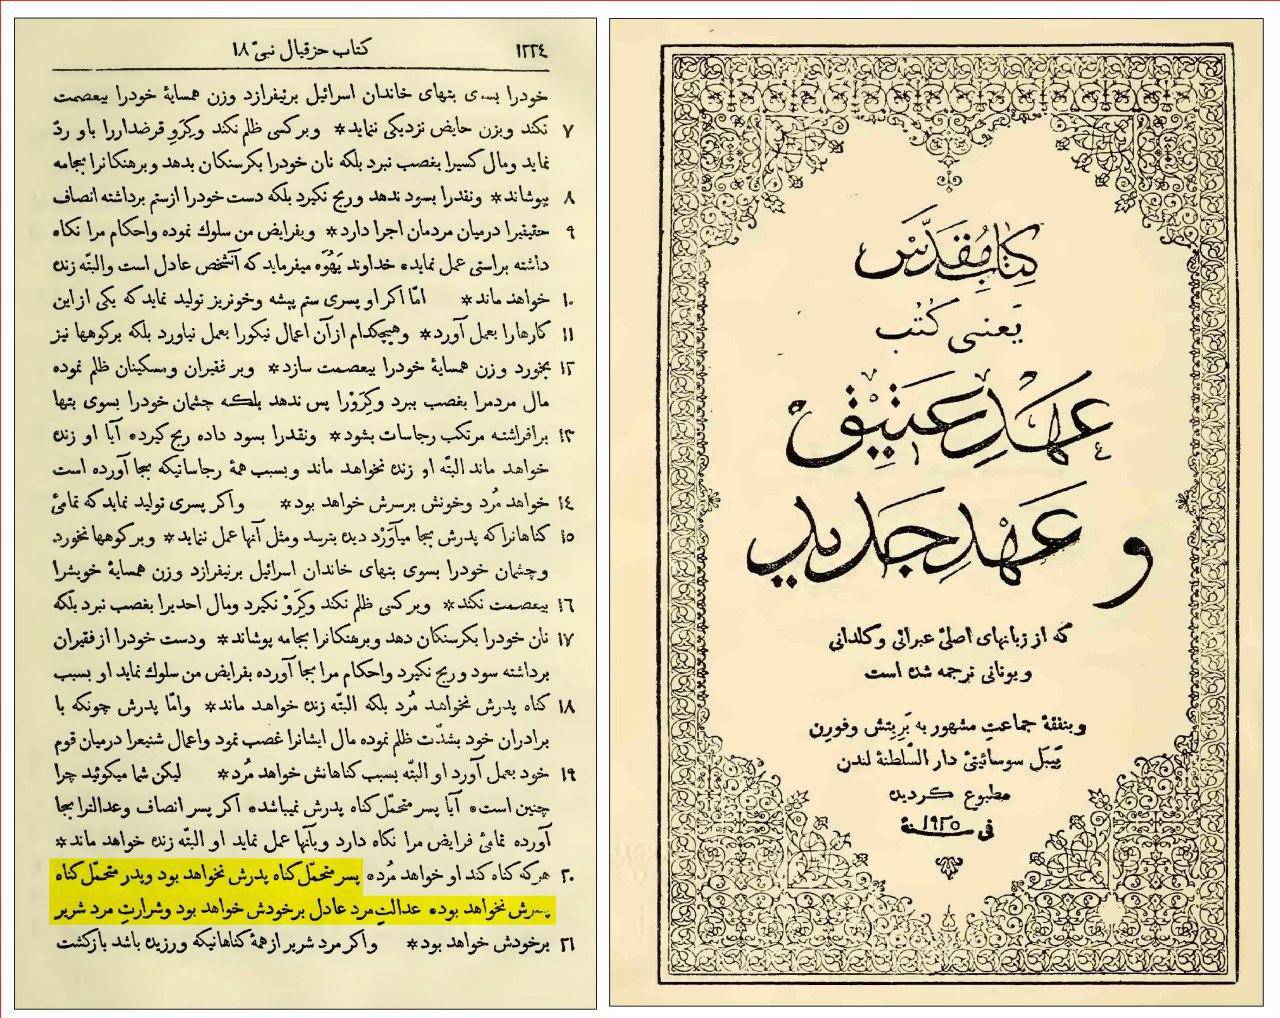 ۱۲۲٤ کتاب حزقیال نبیّ ۱۸
خودرا بسوی بتهای خاندان اسرائیل برنیفرازد وزن همسایهٔ خودرا بیعصمت
۷ نکند وبزن حایض نزدیکی ننماید* وبرکسی ظلم نکند وکِرَوِ قرضداررا باو ردّ
نماید ومال کسیرا بغصب نبرد بلکه نان خودرا بکرسنکان بدهد وبرهنکانرا بجامه
۸ بپوشاند* ونقدرا بسود ندهد وربح نکیرد بلکه دست خودرا ازستم برداشته انصاف
۹ حقیقیرا درمیان مردمان اجرا دارد* وبفرایض من سلوك نموده واحکام مرا نکاه
داشته براستی عمل نماید۰ خداوند یَهُوَه میفرماید که آنشخص عادل است والبتّه زنده
۱۰ خواهد ماند* امّا اکر او پسری ستم پیشه وخونریز تولید نماید که یکی از این
۱۱ کارهارا بعمل آورد* وهیچکدام ازآن اعمال نیکورا بعمل نیاورد بلکه برکوهها نیز
۱۲ بخورد وزن همسایهٔ خودرا بیعصمت سازد* وبر فقیران ومسکینان ظلم نموده
مال مردمرا بغصب ببرد وکِرَوْرا پس ندهد بلکه چشمان خودرا بسوی بتها
۱۳ برافراشته مرتکب رجاسات بشود* ونقدرا بسود داده ربح کیرد۰ آیا او زنده
خواهد ماند البتّه او زنده نخواهد ماند وبسبب همهٔ رجاساتیکه بجا آورده است
۱٤ خواهد مُرد وخونش برسرش خواهد بود* واکر پسری تولید نماید که تمامئ
۱٥ کناهانرا که پدرش بجا میآوَرْد دیده بترسد ومثل آنها عمل ننماید* وبرکوهها نخورد
وچشمان خودرا بسوی بتهای خاندان اسرائیل برنیفرازد وزن همسایهٔ خویشرا
۱٦ بیعصمت نکند* وبرکسی ظلم نکند وکِرَوْ نکیرد ومال احدیرا بغصب نبرد بلکه
۱۷ نان خودرا بکرسنکان دهد وبرهنکانرا بجامه پوشاند* ودست خودرا ازفقیران
برداشته سود وربح نکیرد واحکام مرا بجا آورده بفرایض من سلوك نماید او بسبب
۱۸ کناه پدرش نخواهد مُرد بلکه البتّه زنده خواهد ماند* وامّا پدرش چونکه با
برادران خود بشدّت ظلم نموده مال ایشانرا غصب نمود واعمال شنیعرا درمیان قوم
۱۹ خود بعمل آورد او البتّه بسبب کناهانش خواهد مُرد* لیکن شما میکوئید چرا
چنین است۰ آیا پسر متحمّل کناه پدرش نمیباشد۰ اکر پسر انصاف وعدالترا بجا
آورده تمامئ فرایض مرا نکاه دارد وبآنها عمل نماید او البتّه زنده خواهد ماند*
۲۰ هرکه کناه کند او خواهد مُرد۰ پسر متحمّل کناه پدرش نخواهد بود وپدر متحمّل کناه
پسرش نخواهد بود۰ عدالتِ مرد عادل برخودش خواهد بود وشرارتِ مرد شریر
۲۱ برخودش خواهد بود* واکر مرد شریر ازهمهٔ کناهانیکه ورزیده باشد بازکشت
کتاب مُقدَّس
یَعنی کُتُب
عهدِ عتیق
و عهدِ جدید
که از زبانهای اصلئ عبرانی وکلدانی
ویونانی ترجمه شده است
وبنفقهٔ جماعتِ مشهور به بَرِیتِش وفورِن
بَیبَل سوسائیتئ دار السّلطنهٔ لندن
مطبوع کردید
فی سنهٔ ۱۹۲٥